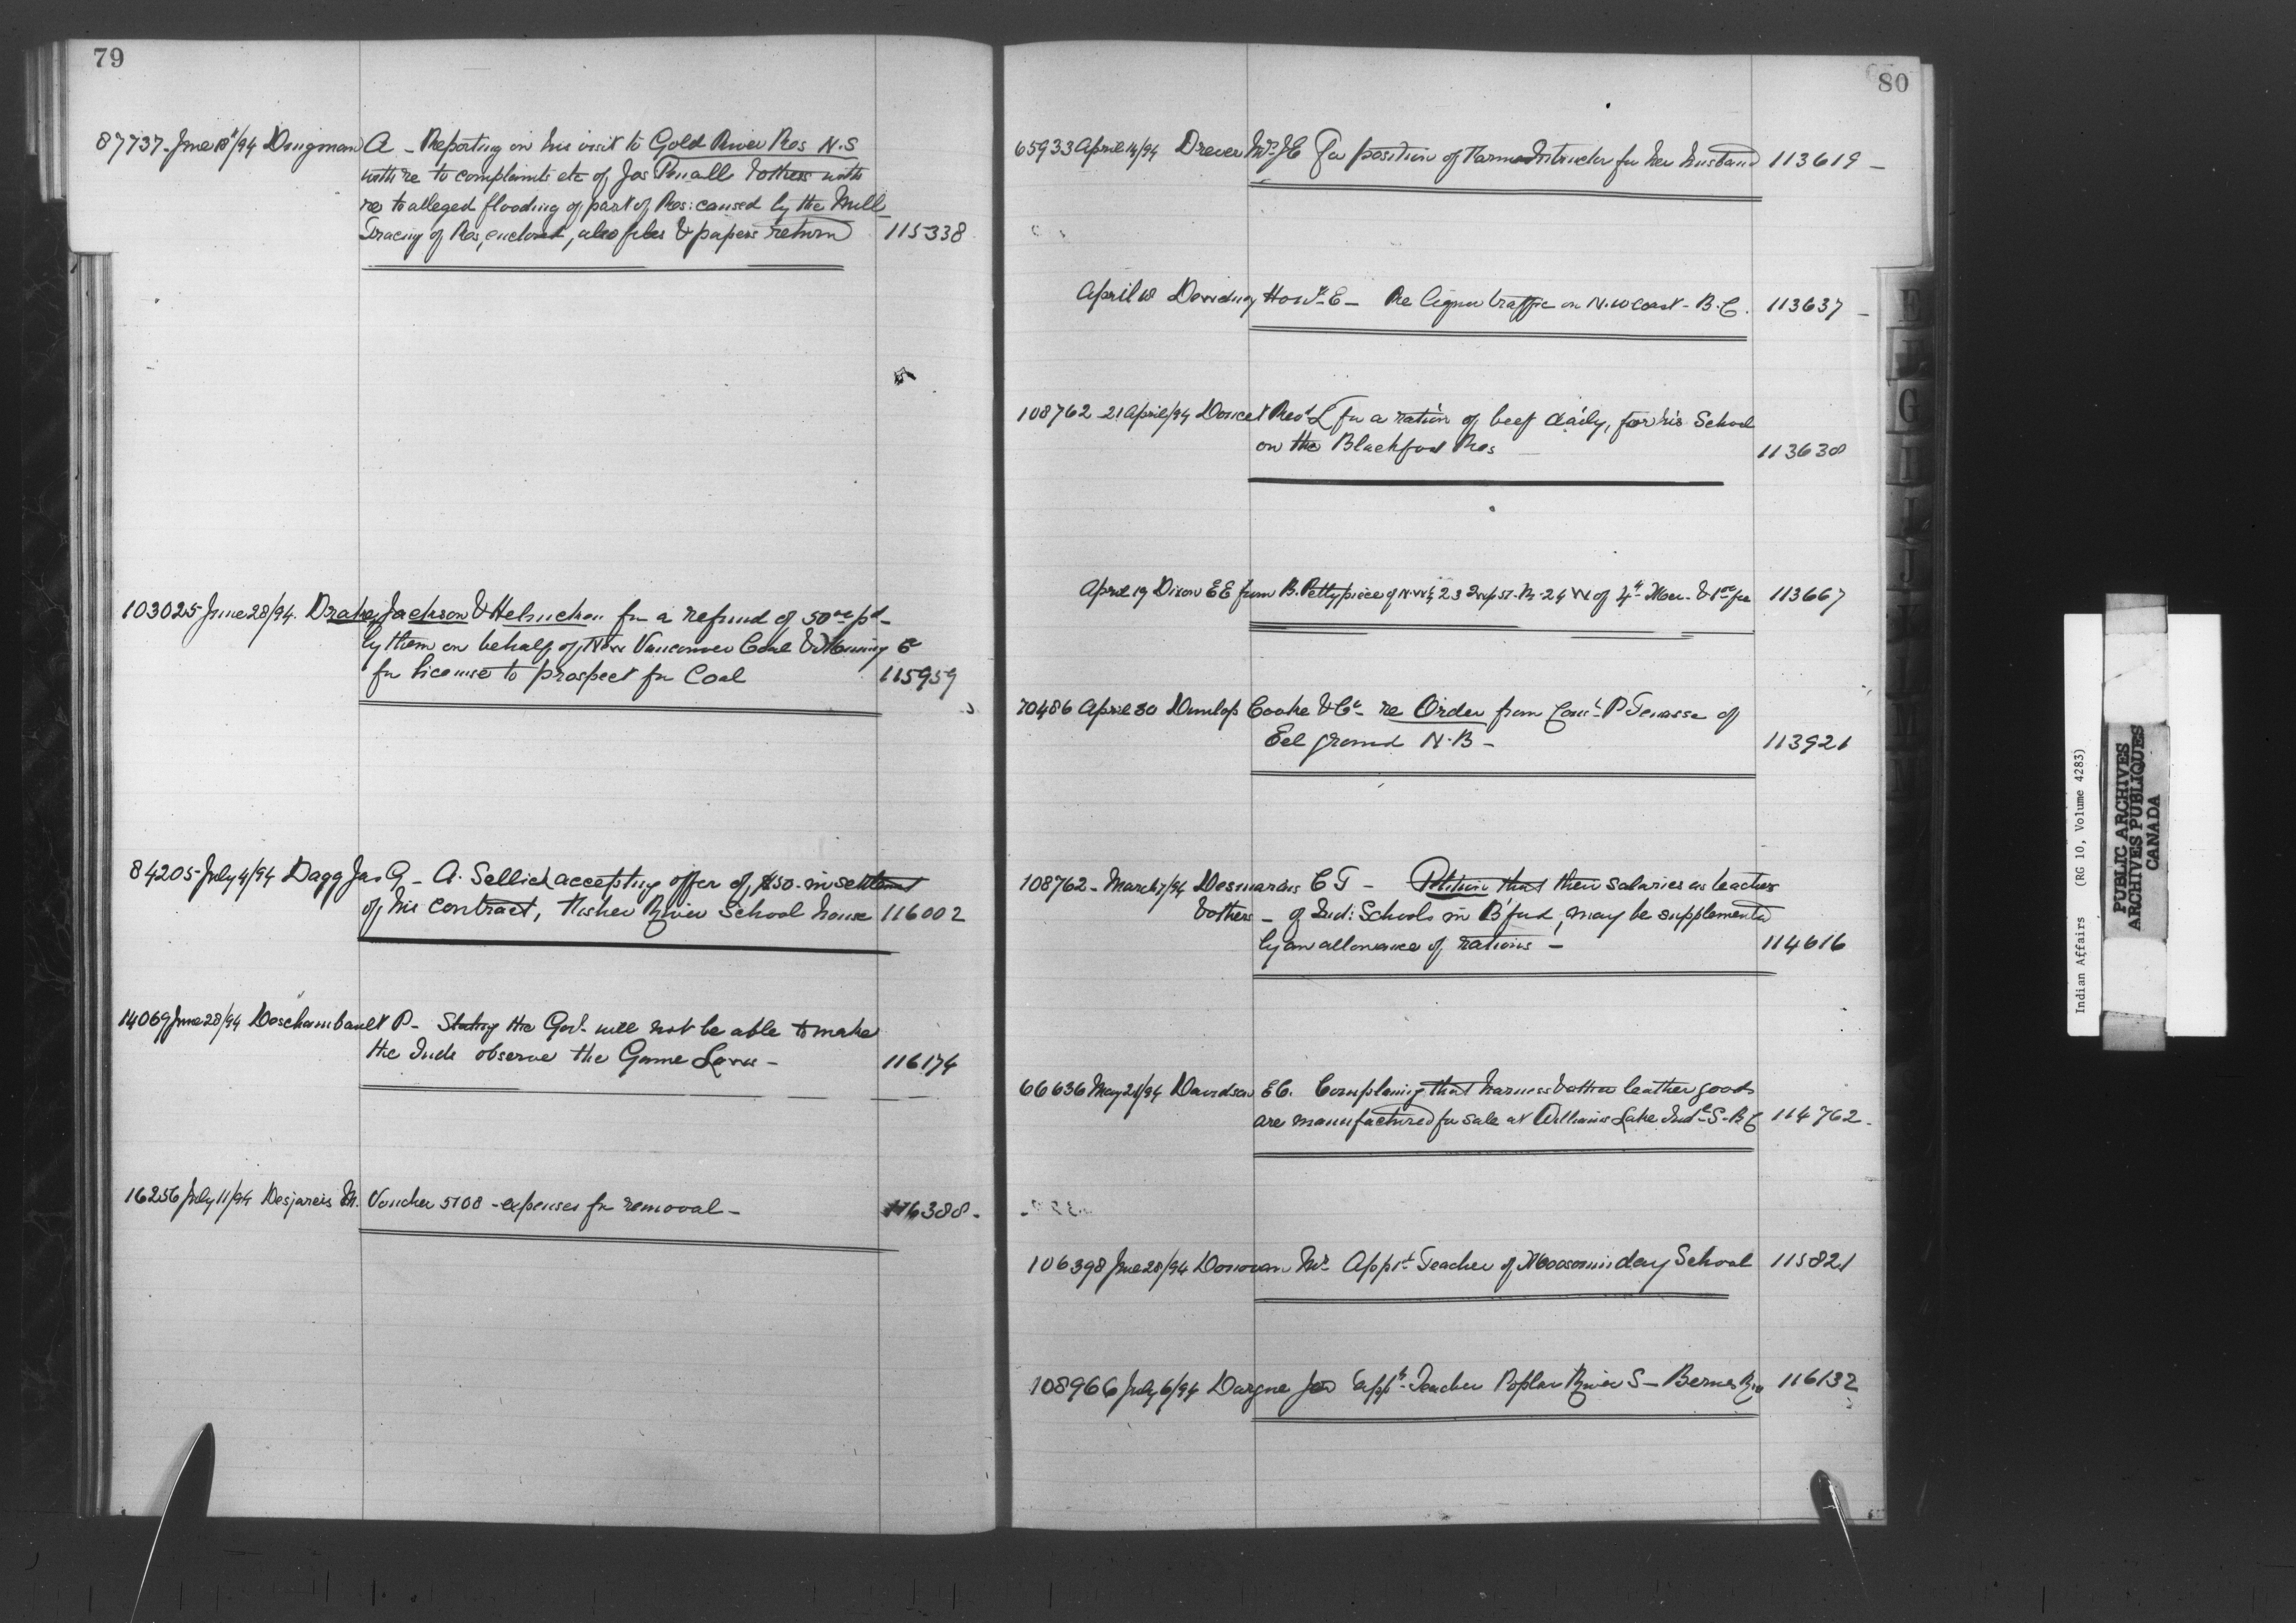 79
87737 - June 18/94 Dingman A - Reporting on his visit to Gold River Res N.S
with re to complaints etc of Jas Penall & others with
re to alleged flooding of part of Res: caused by the Mill
Tracing of Res, enclosed, also files & papers return 115338
103025 June 28/94. Drake, Jackson & Helmcken for a refund of 50 00 pd -
by them on behalf of New Vancouver Coal & Mining Co
for license to prospect for Coal 115959
84205 - July 4/94 Dagg Jas G - A. Sellick accepting offer of, $50. - in settlement
of his contract, Fisher River School house 116002
14069 June 28/94 Deschambault P - Stating the Govt. will not be able to make
the Inds observe the Game Laws - 116174
16256 July 11/94 Desjarais M. Voucher 5108 - expenses for removal - 116388 -
80
65933 April 14/94 Drever Mrs J E For position of Farm Instructor for her husband 113619 -
April 18 Dewdney Honble E - Re liquor traffic on N.W coast - B.C. 113637 -
108762 - 21 April/94 Doucet Revd L for a ration of beef daily, for his School
on the Blackfoot Res 113638
April 19 Dixon E E from B. Pettypiece of N.W 1/4 23 Twp 57. R. 24 W of 4th Mer. & 113667
70486 April 30 Dunlop Cooke & Co - re Order from P Tenasse of
Eel ground N.B - 113921
108762 - March 7/94 Desmarais C T - Petition that their salaries as teachers
& others - of Ind: Schools in B'ford, may be supplemented
by an allowance of rations - 114616
66636 May 21/94 Davidson E C. Complaining that harness & other leather goods
are manufactured for sale at Williams Lake Indl - S - B C 114762 -
106398 June 28/94 Donovan Mr Appt Teacher of Moosomin day School 115821
108966 July 6/94 Dargue Jos appt - Teacher Poplar River S - Berens Riv 116132
E
G
I
J
M
Indian Affairs (RG 10, Volume 4283)
PUBLIC ARCHIVES
ARCHIVES PUBLIQUES
CANADA